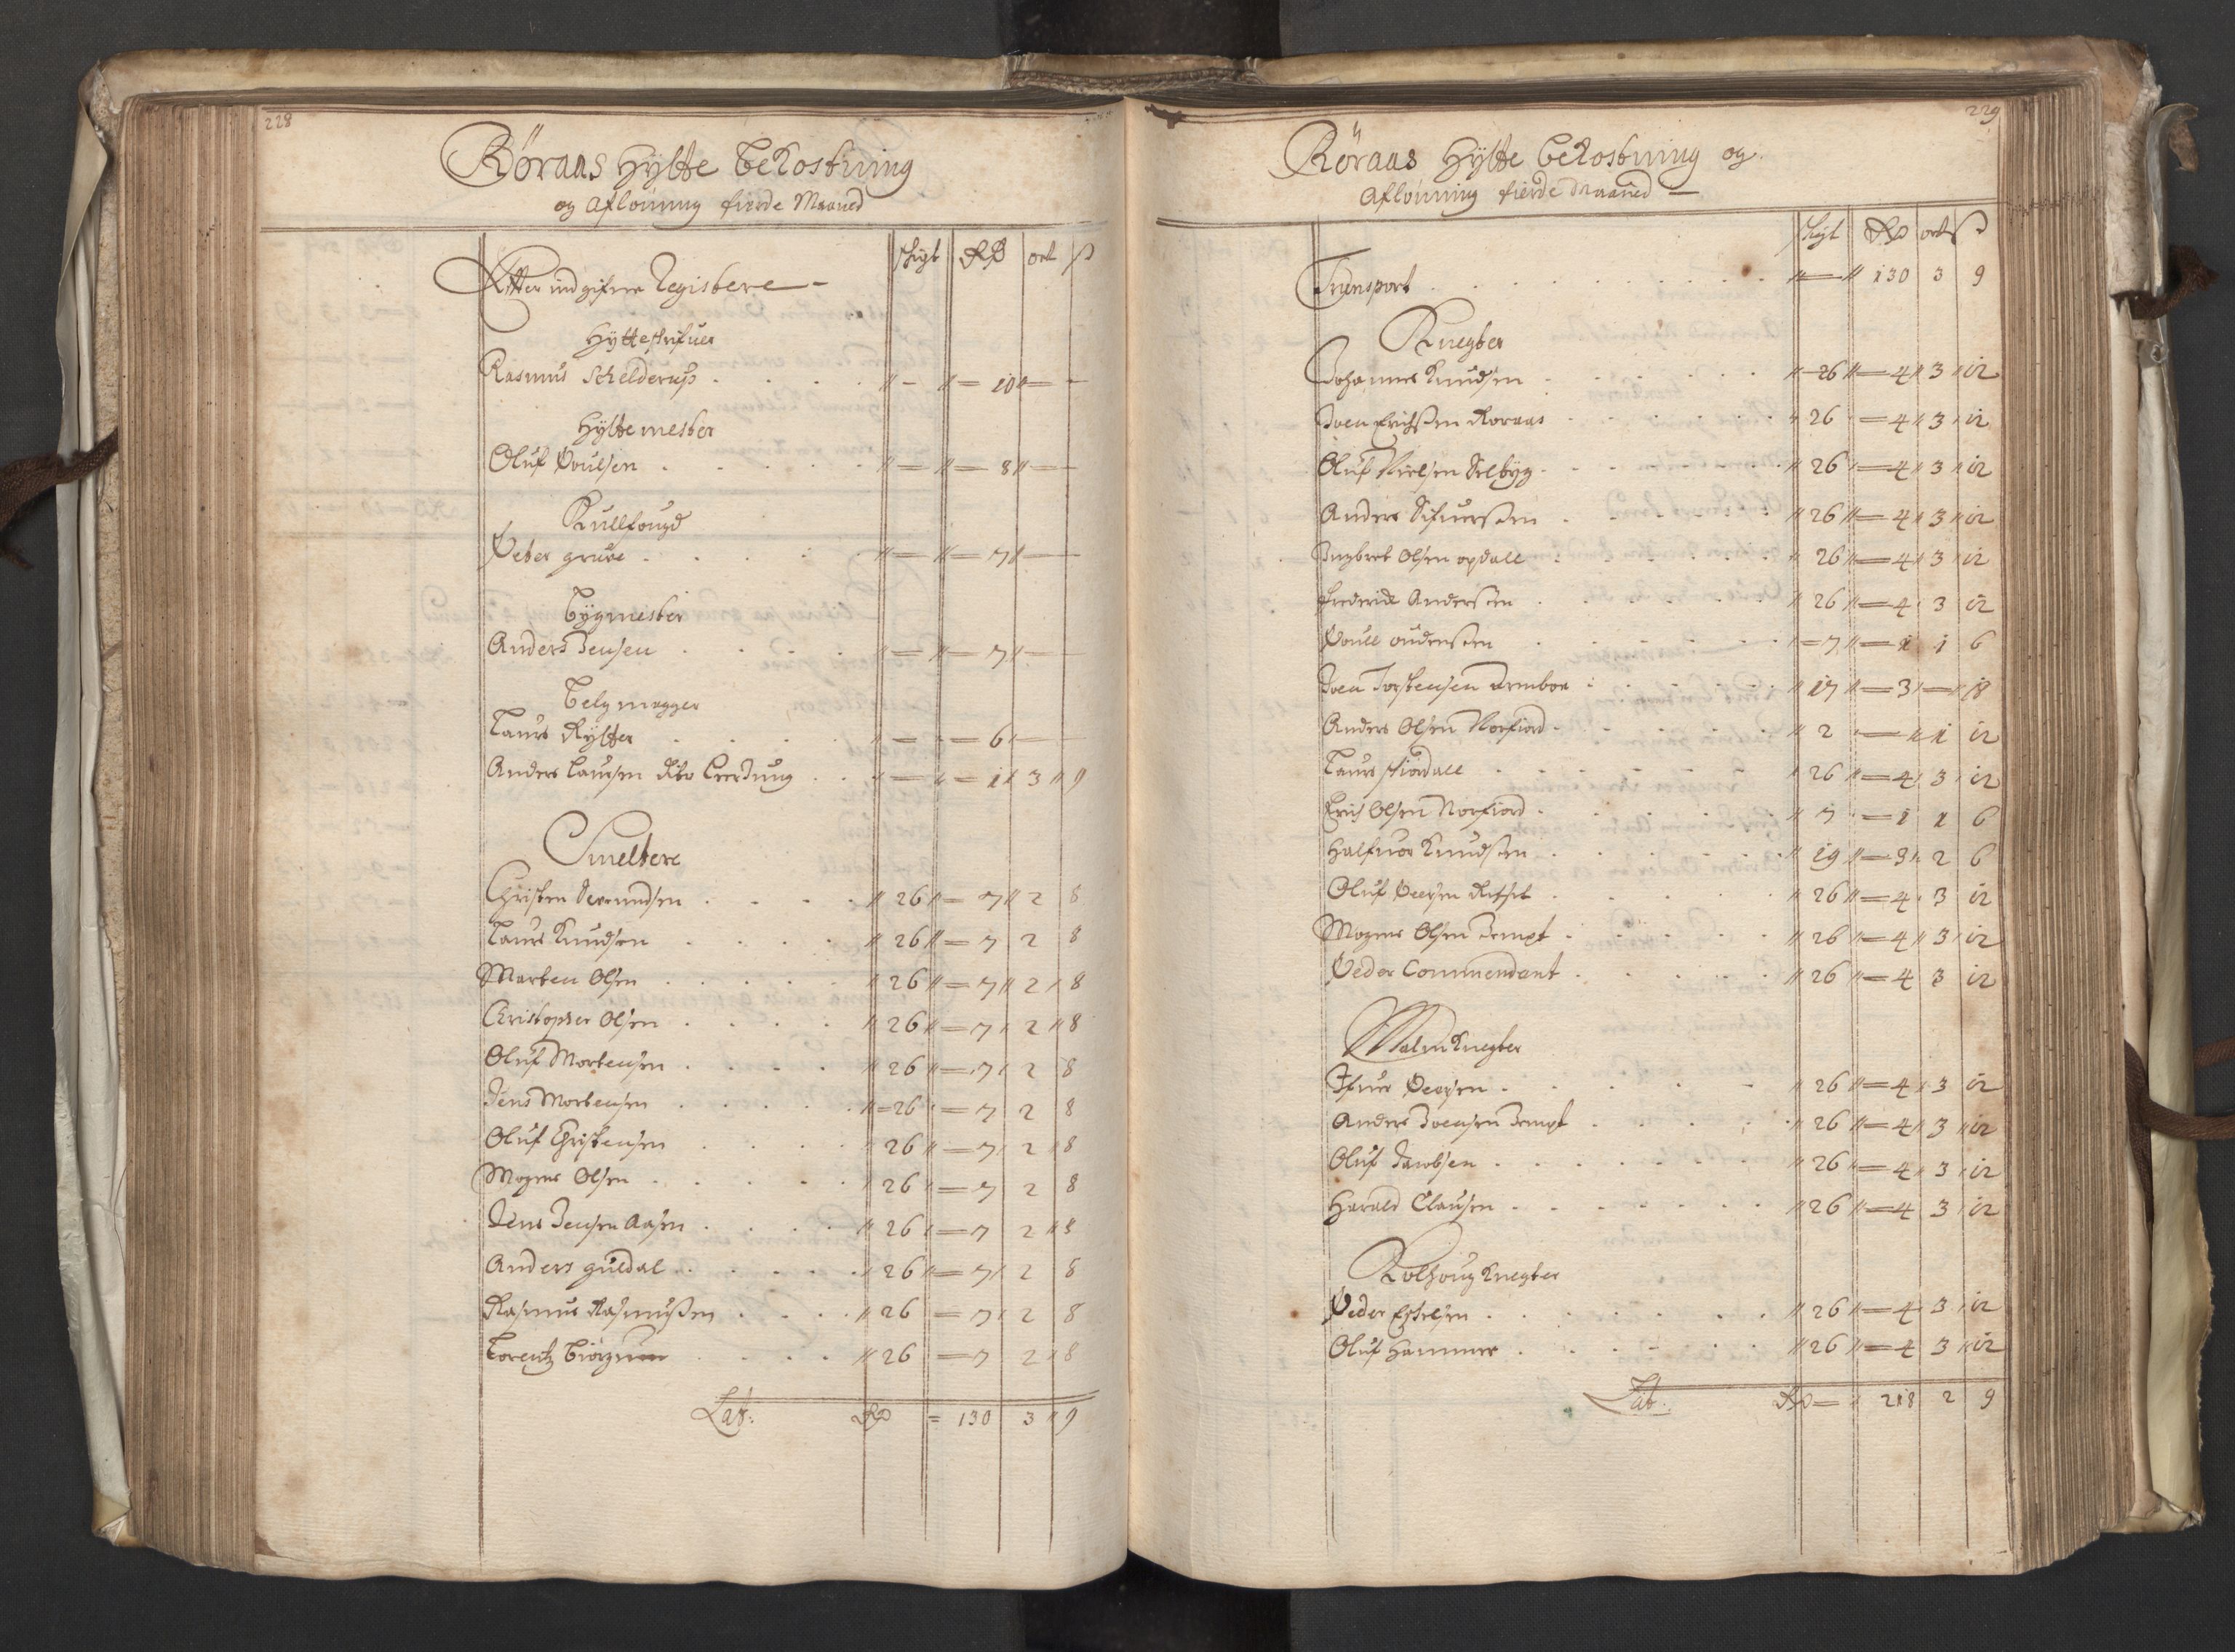 228
Röraas Hÿtte Bekostning
og Aflönning fierde Maaned
schigt RD ort ß
Effter indgifne Registere
Hÿtteschrifuer
Rasmus Schelderup . . . . " — " = 10 " —
Hÿttemester
Oluf Poulsen . . . . . " — " = 8 " —
Kullfougd
Peter gruve . . . . . " — " = 7 " —
Bÿgmester
Anders Jensen . . . . " — " = 7 " —
Belgmagger
Laurs Rÿtter . . . . " — " = 6 " —
Anders Laursen . . " — " = 1 " 3 " 9
Smeltere
Christen . . . . " 26 " = 7 " 2 8
Laurs Knudsen . . . . " 26 " = 7 2 8
Morten Olsen . . . . . " 26 " = 7 " 2 " 8
Christopher Olsen . . . . " 26 " = 7 " 2 " 8
Oluf Mortensen . . . . " 26 " = 7 " 2 8
Jens Mortensen . . . . . " = 26 " = 7 2 8
Oluf Christensen . . . . " 26 " = 7 " 2 " 8
Mogens Olsen . . . . . " 26 " = 7 2 8
Jens Jensen Aasen . . . . " 26 " = 7 2 " 8
Anders guldal . . . . . " 26 " = 7 " 2 8
Rasmus Rasmußen . . . . " 26 = 7 " 2 8
Lorentz . . . . " 26 = 7 2 " 8
Lat: RD = 130 3 " 9
229
Röraas Hÿtte Bekostning og
Aflönning fierde Maaned —
schigt RD ort ß
Transport . . . . . . . . . " — " 130 3 9
Knegter
Johannes Knudsen . . . . . . " 26 " = 4 " 3 " 12
Joen Erichßen Roraas . . . . . . " 26 = 4 " 3 " 12
Oluf Nielsen Selbÿg . . . . . . " 26 " = 4 " 3 " 12
Anders Sifuerßen . . . . . . " 26 " = 4 " 3 " 12
Ingbret Olsen opdall . . . . . . " 26 " = 4 " 3 " 12
Frederick Anderßen . . . . . . " 26 " = 4 " 3 12
Poull . . . . . . " = 7 " = 1 1 6
Joen Torstensen . . . . . " 17 " = 3 " — " 18
Anders Olsen Norfiord . . . . . . " 2 " — " 1 12
Laurs stiördall . . . . . . " 26 " = 4 " 3 " 12
Erich Olsen Norfiord . . . . . . " 7 " = 1 1 6
Halfuor Knudsen . . . . . . " 19 " = 3 " 2 6
Oluf . . . . . " 26 " = 4 " 3 12
Mogens Olsen Jempt . . . . . " 26 " = 4 " 3 " 12
Peder Commendant . . . . . " 26 " = 4 3 12
Malm Knegter
Ifuer . . . . . " 26 " = 4 " 3 12
Anders Joensen Jempt . . . . . " 26 " = 4 " 3 " 12
Oluf Jacobsen . . . . . . . " 26 " = 4 " 3 " 12
Harald Clausen . . . . . . . " 26 " = 4 3 " 12
Kolhoug Knegter
Peder Eskelsen . . . . . . . " 26 " = 4 3 " 12
Oluf Hammer . . . . . . " 26 " = 4 3 " 12
Lat: RD = " 218 2 9